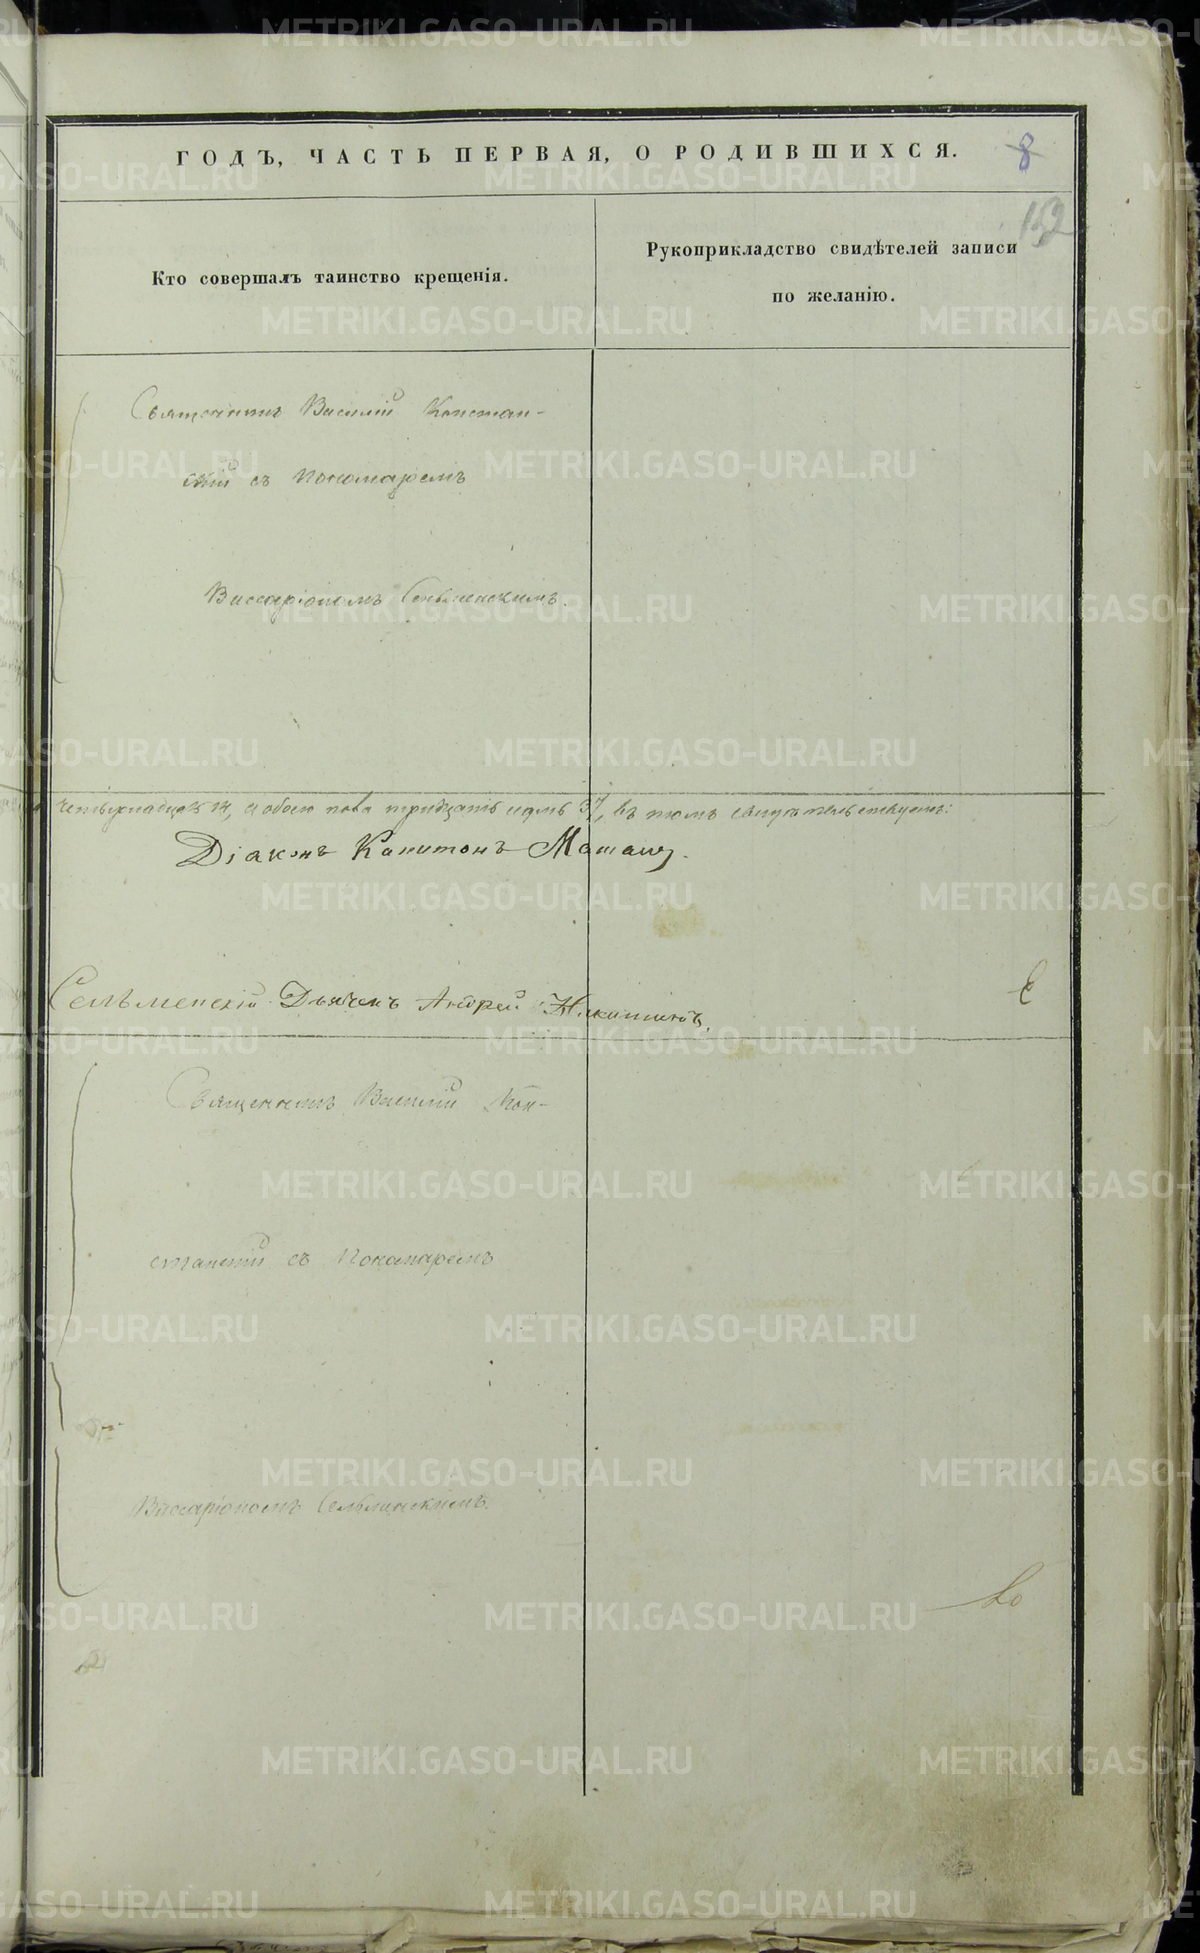 ГОДЪ, ЧАСТЬ ПЕРВАЯ, О РОДИВШИХСЯ.
8
152
Кто совершалъ таинство крещенія.
Рукоприкладство свидѣтелей записи
по желанію.
Священникъ Василій Констан-
скій съ Пономаремъ
Виссаріономъ Сельменскимъ.
четырнадцать 14, а обоего пола тридцать семь 37, въ томъ свидѣтельствуемъ:
Діаконъ Капитонъ
Сельменскій Дьячекъ Андрей Никитинъ.
Священникъ Василій Кон-
станскій съ Пономаремъ
Виссаріономъ Сельменскимъ.
METRIKI.GASO-URAL.RU